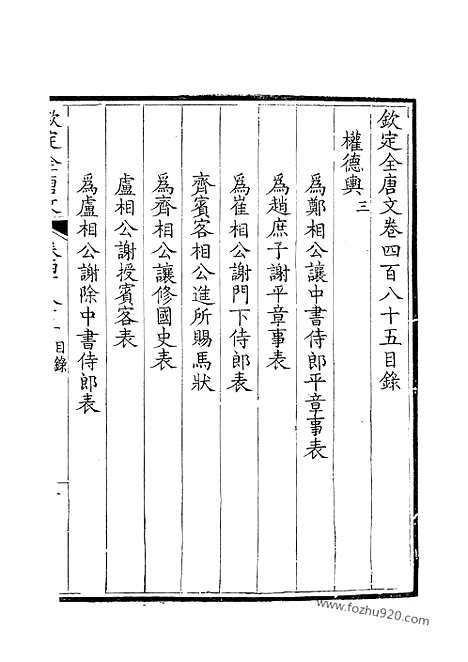 欽定全唐文卷四百八十五目錄
權德輿 三
為鄭相公讓中書侍郎平章事表
為趙庶子謝平章事表
為崔相公謝門下侍郎表
齊賓客相公進所賜馬狀
為齊相公讓修國史表
盧相公謝授賓客表
為盧相公謝除中書侍郎表
欽定全唐文
目錄
www.fozhu920.com